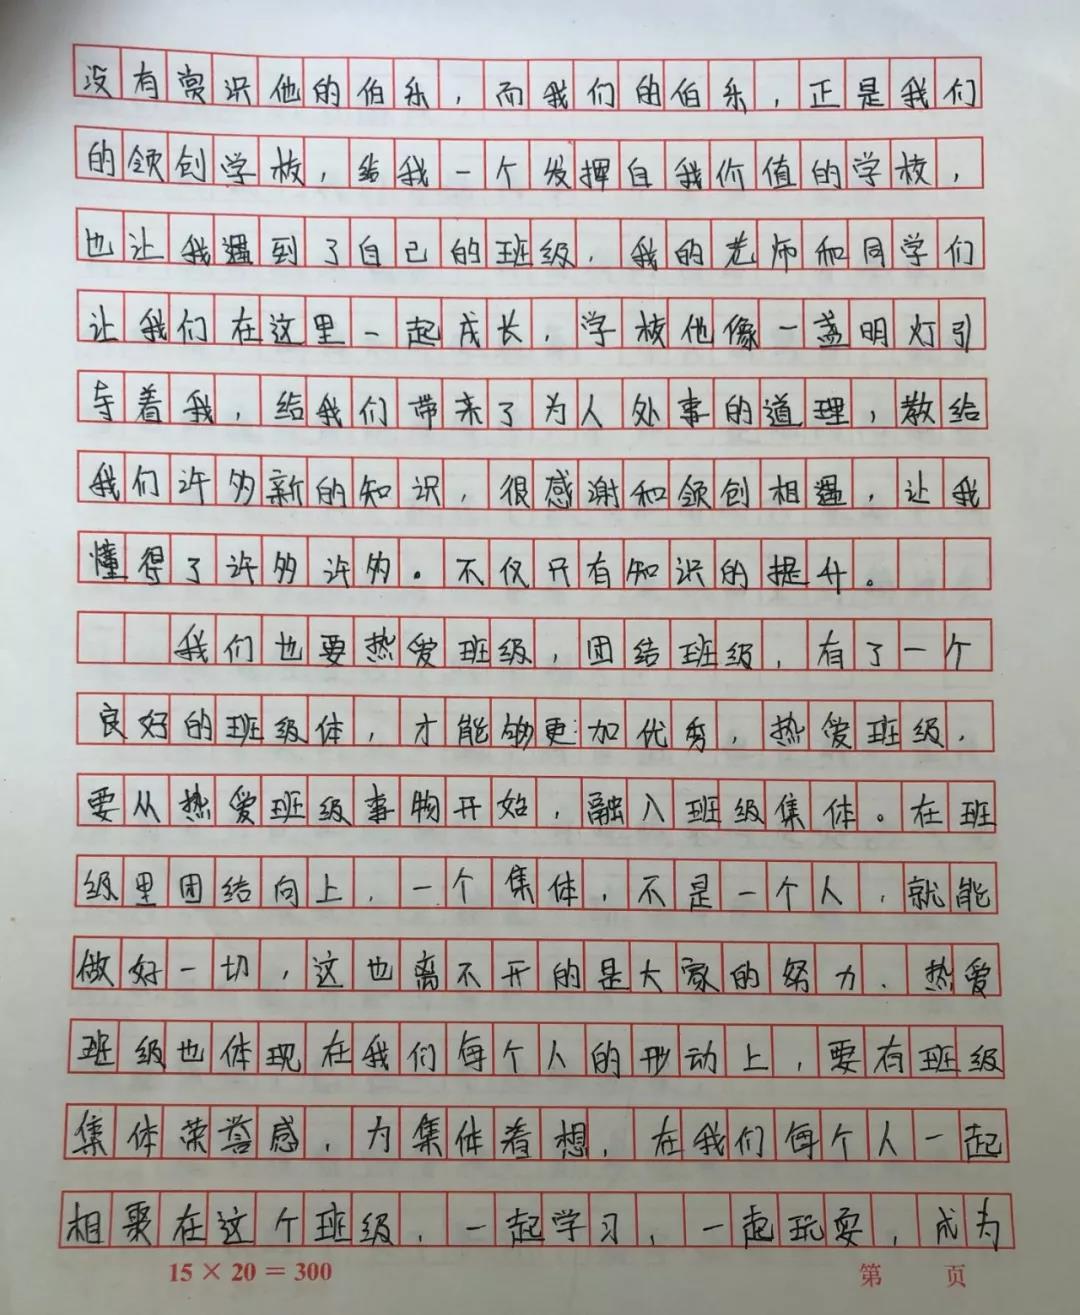 没有赏识他的伯乐，而我们的伯乐，正是我们
的领创学校，给我一个发挥自我价值的学校，
也让我遇到了自己的班级，我的老师和同学们
让我们在这里一起成长，学校他像一盏明灯引
导着我，给我们带来了为人处事的道理，教给
我们许多新的知识，很感谢和领创相遇，让我
懂得了许多许多。不仅只有知识的提升。
我们也要热爱班级，团结班级，有了一个
良好的班级体，才能够更加优秀，热爱班级，
要从热爱班级事物开始，融入班级集体。在班
级里团结向上，一个集体，不是一个人，就能
做好一切，这也离不开的是大家的努力、热爱
班级也体现在我们每个人的形动上，要有班级
集体荣誉感，为集体着想，在我们每个人一起
相聚在这个班级，一起学习，一起玩耍，成为
15 × 20 = 300 第 页